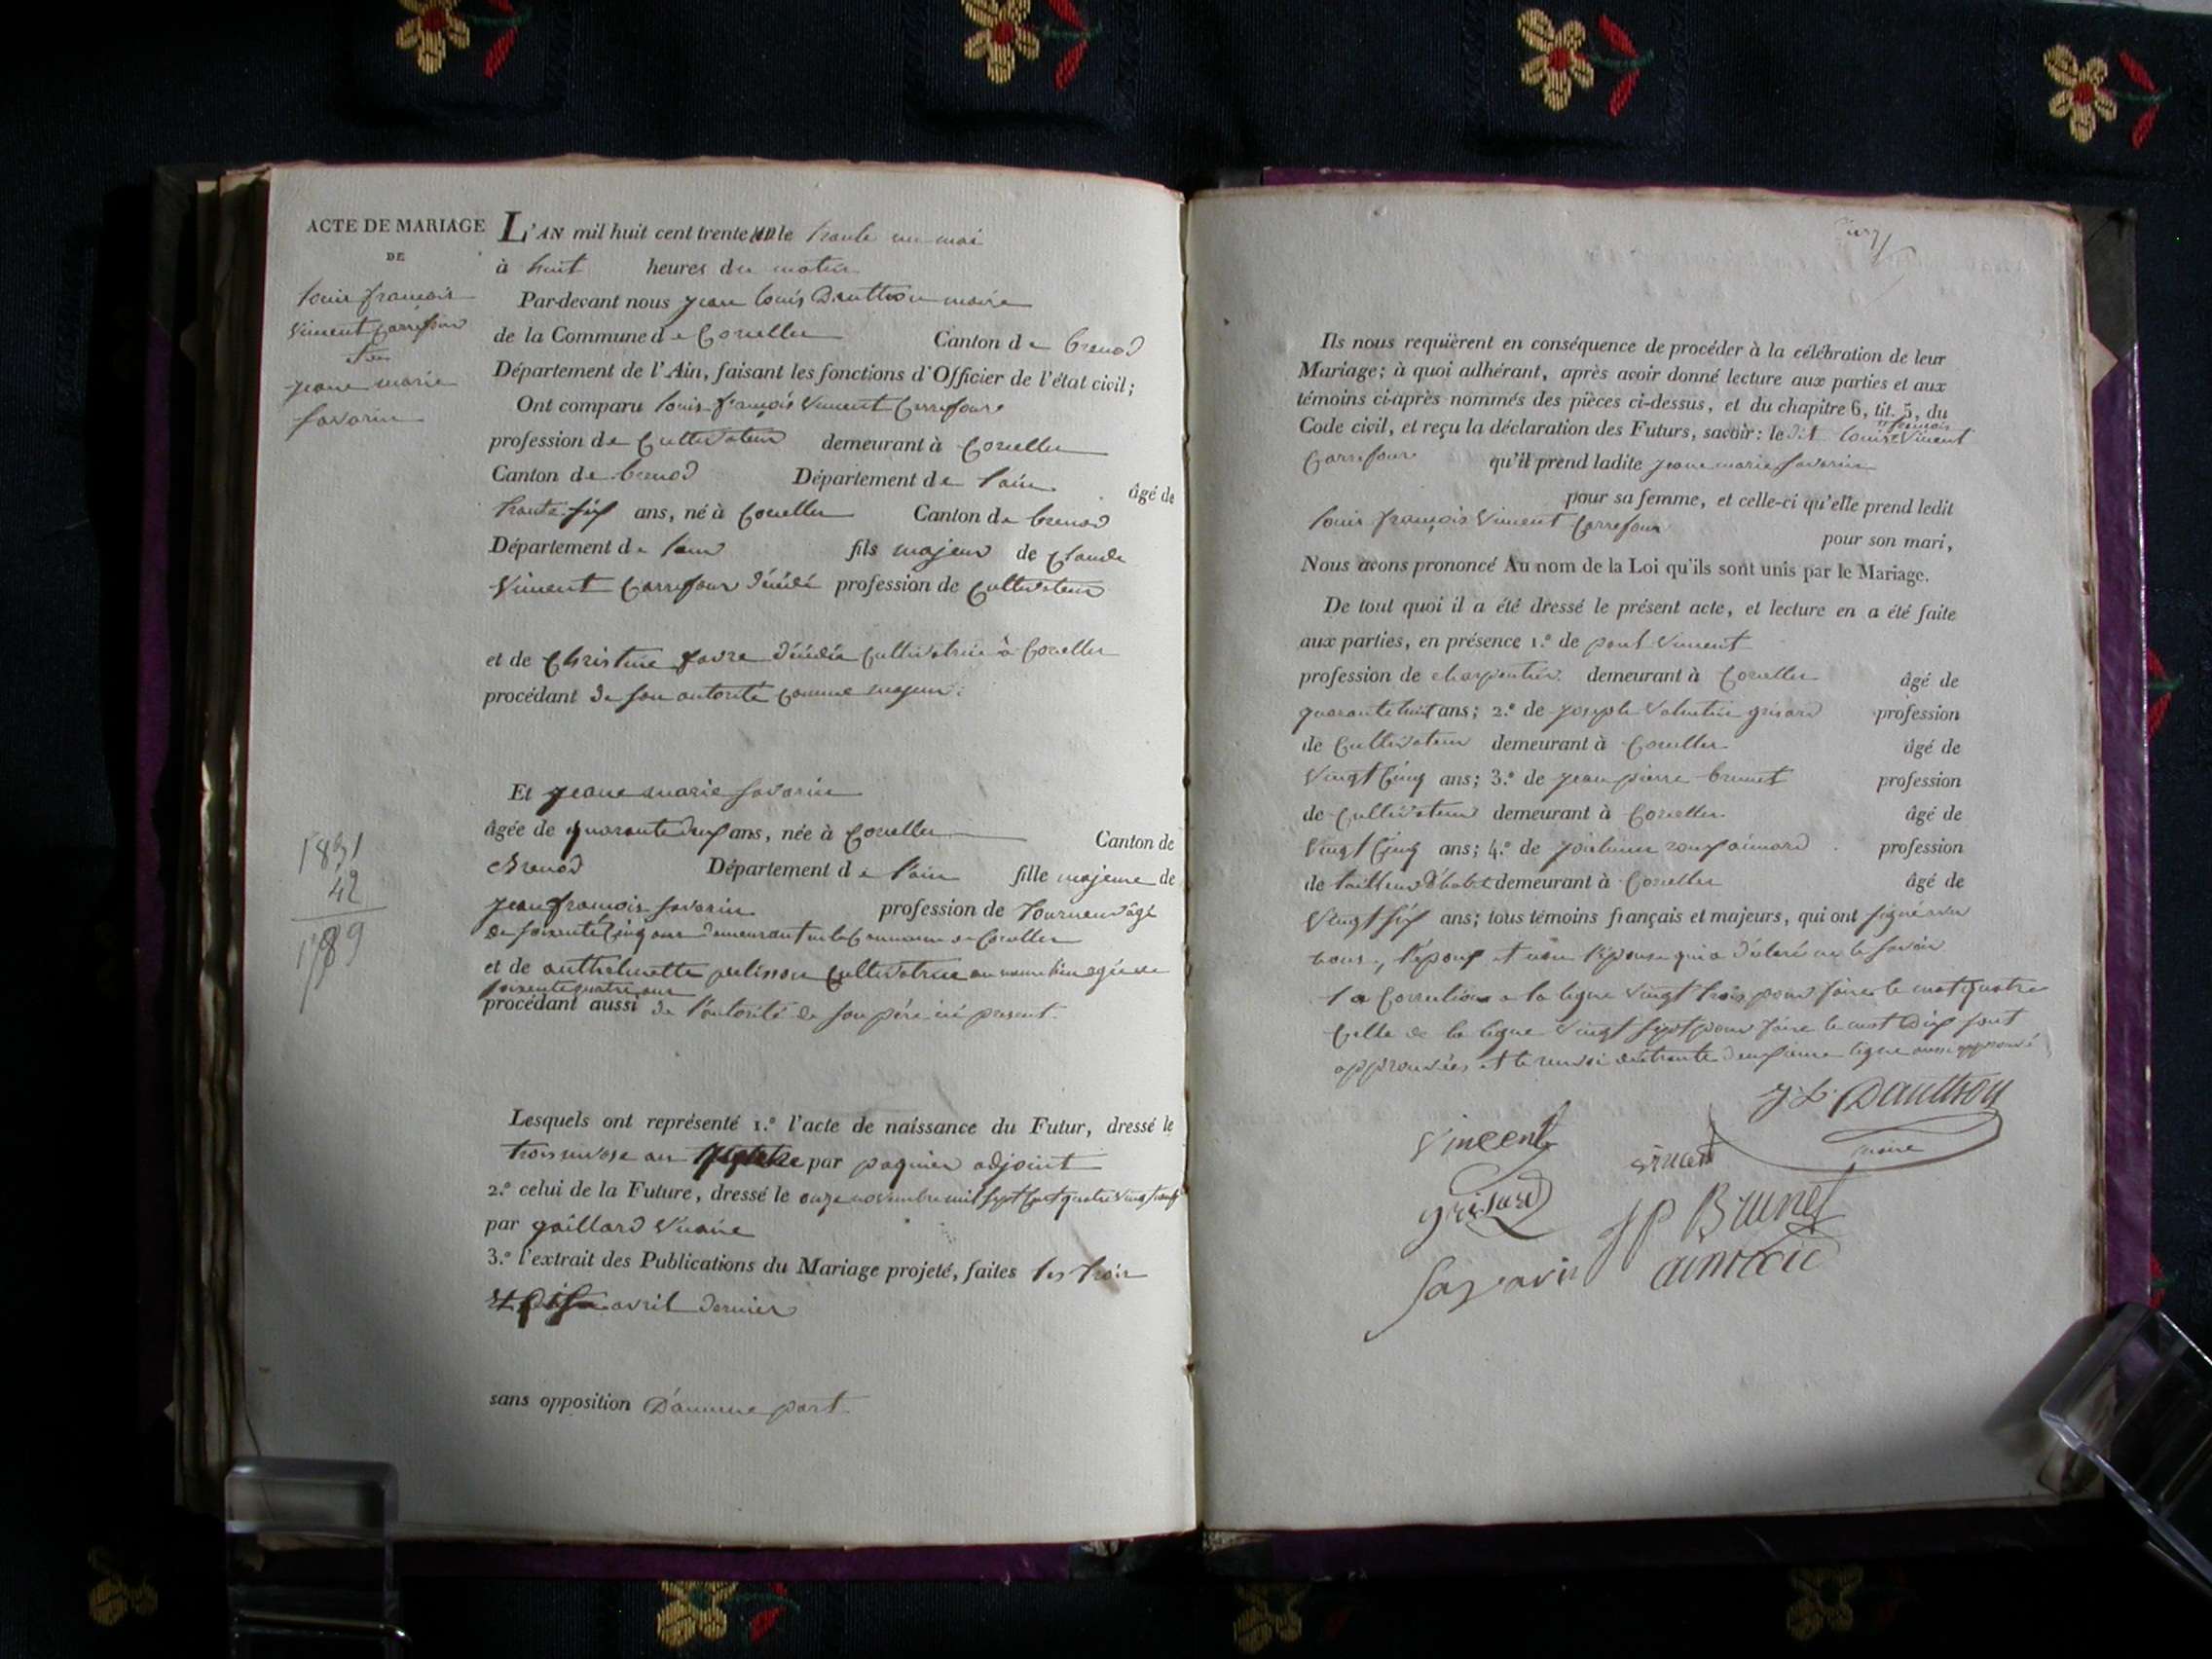 ACTE DE MARIAGE
DE
louis francois
Vincent Carrefour
et de
jeane marie
savarin
1831
42
1789
L'AN mil huit cent trente un le trente un mai
à huit heures du matin
Par-devant nous jean louis Dauthon maire
de la Commune de Corcelles Canton de brenod
Département de l'Ain, faisant les fonctions d'Officier de l'état civil;
Ont comparu louis françois Vincent Carrefour
profession de Cultivateur demeurant à Corcelles
Canton de brenod Département de l'ain âgé de
trente six ans, né à Corcelles Canton de brenod
Département de l'ain fils majeur de Claude
Vincent Carrefour décédé profession de Cultivateur
et de Christine favre décédée Cultivatrice à Corcelles
procédant de son autorité Comme majeur
Et jeane marie savarin
âgée de quarante deux ans, née à Corcelles Canton de
Brenod Département de l'ain fille majeure de
jean françois savarin profession de tourneur âgé
de soixante Cinq ans demeurant en la Commune de Corcelles
et de anthelmette pelisson Cultivatrice au meme lieu agée de
soixante quatre ans
procédant aussi de l'autorité de son père ici present
Lesquels ont représenté 1.º l'acte de naissance du Futur, dressé le
trois nivose an par paquier adjoint
2.º celui de la Future, dressé le onze novembre mil sept Cent quatre vingt neuf
par gaillard Vicaire
3.º l'extrait des Publications du Mariage projeté, faites les trois
et dix avril dernier
sans opposition D'aucune part
Ils nous requièrent en conséquence de procéder à la célébration de leur
Mariage; à quoi adhérant, après avoir donné lecture aux parties et aux
témoins ci-après nommés des pièces ci-dessus, et du chapitre 6, tit. 5, du
Code civil, et reçu la déclaration des Futurs, savoir: ledit louis françois Vincent
Carrefour qu'il prend ladite jeane marie savarin
pour sa femme, et celle-ci qu'elle prend ledit
louis françois Vincent Carrefour
pour son mari,
Nous avons prononcé Au nom de la Loi qu'ils sont unis par le Mariage.
De tout quoi il a été dressé le présent acte, et lecture en a été faite
aux parties, en présence 1.º de paul Vincent
profession de charpentier demeurant à Corcelles âgé de
quarante huit ans; 2.º de joseph Valentin grisard profession
de Cultivateur demeurant à Corcelles âgé de
Vingt Cinq ans; 3.º de jean pierre brunet profession
de Cultivateur demeurant à Corcelles âgé de
Vingt Cinq ans; 4.º de profession
de tailleur d'habit demeurant à Corcelles âgé de
Vingt six ans; tous témoins français et majeurs, qui ont signé avec
nous, l'époux et non l'épouse qui a déclaré ne le savoir
la Correction a la ligne Vingt trois pour faire le mot quatre
Celle de la ligne Vingt sept pour faire le mot dix sont
approuvées et le renvoi de trente deuxieme ligne aussi approuvé
J L Dauthon
maire
Vincent
vincent
grisard
J P Brunet
Savarin